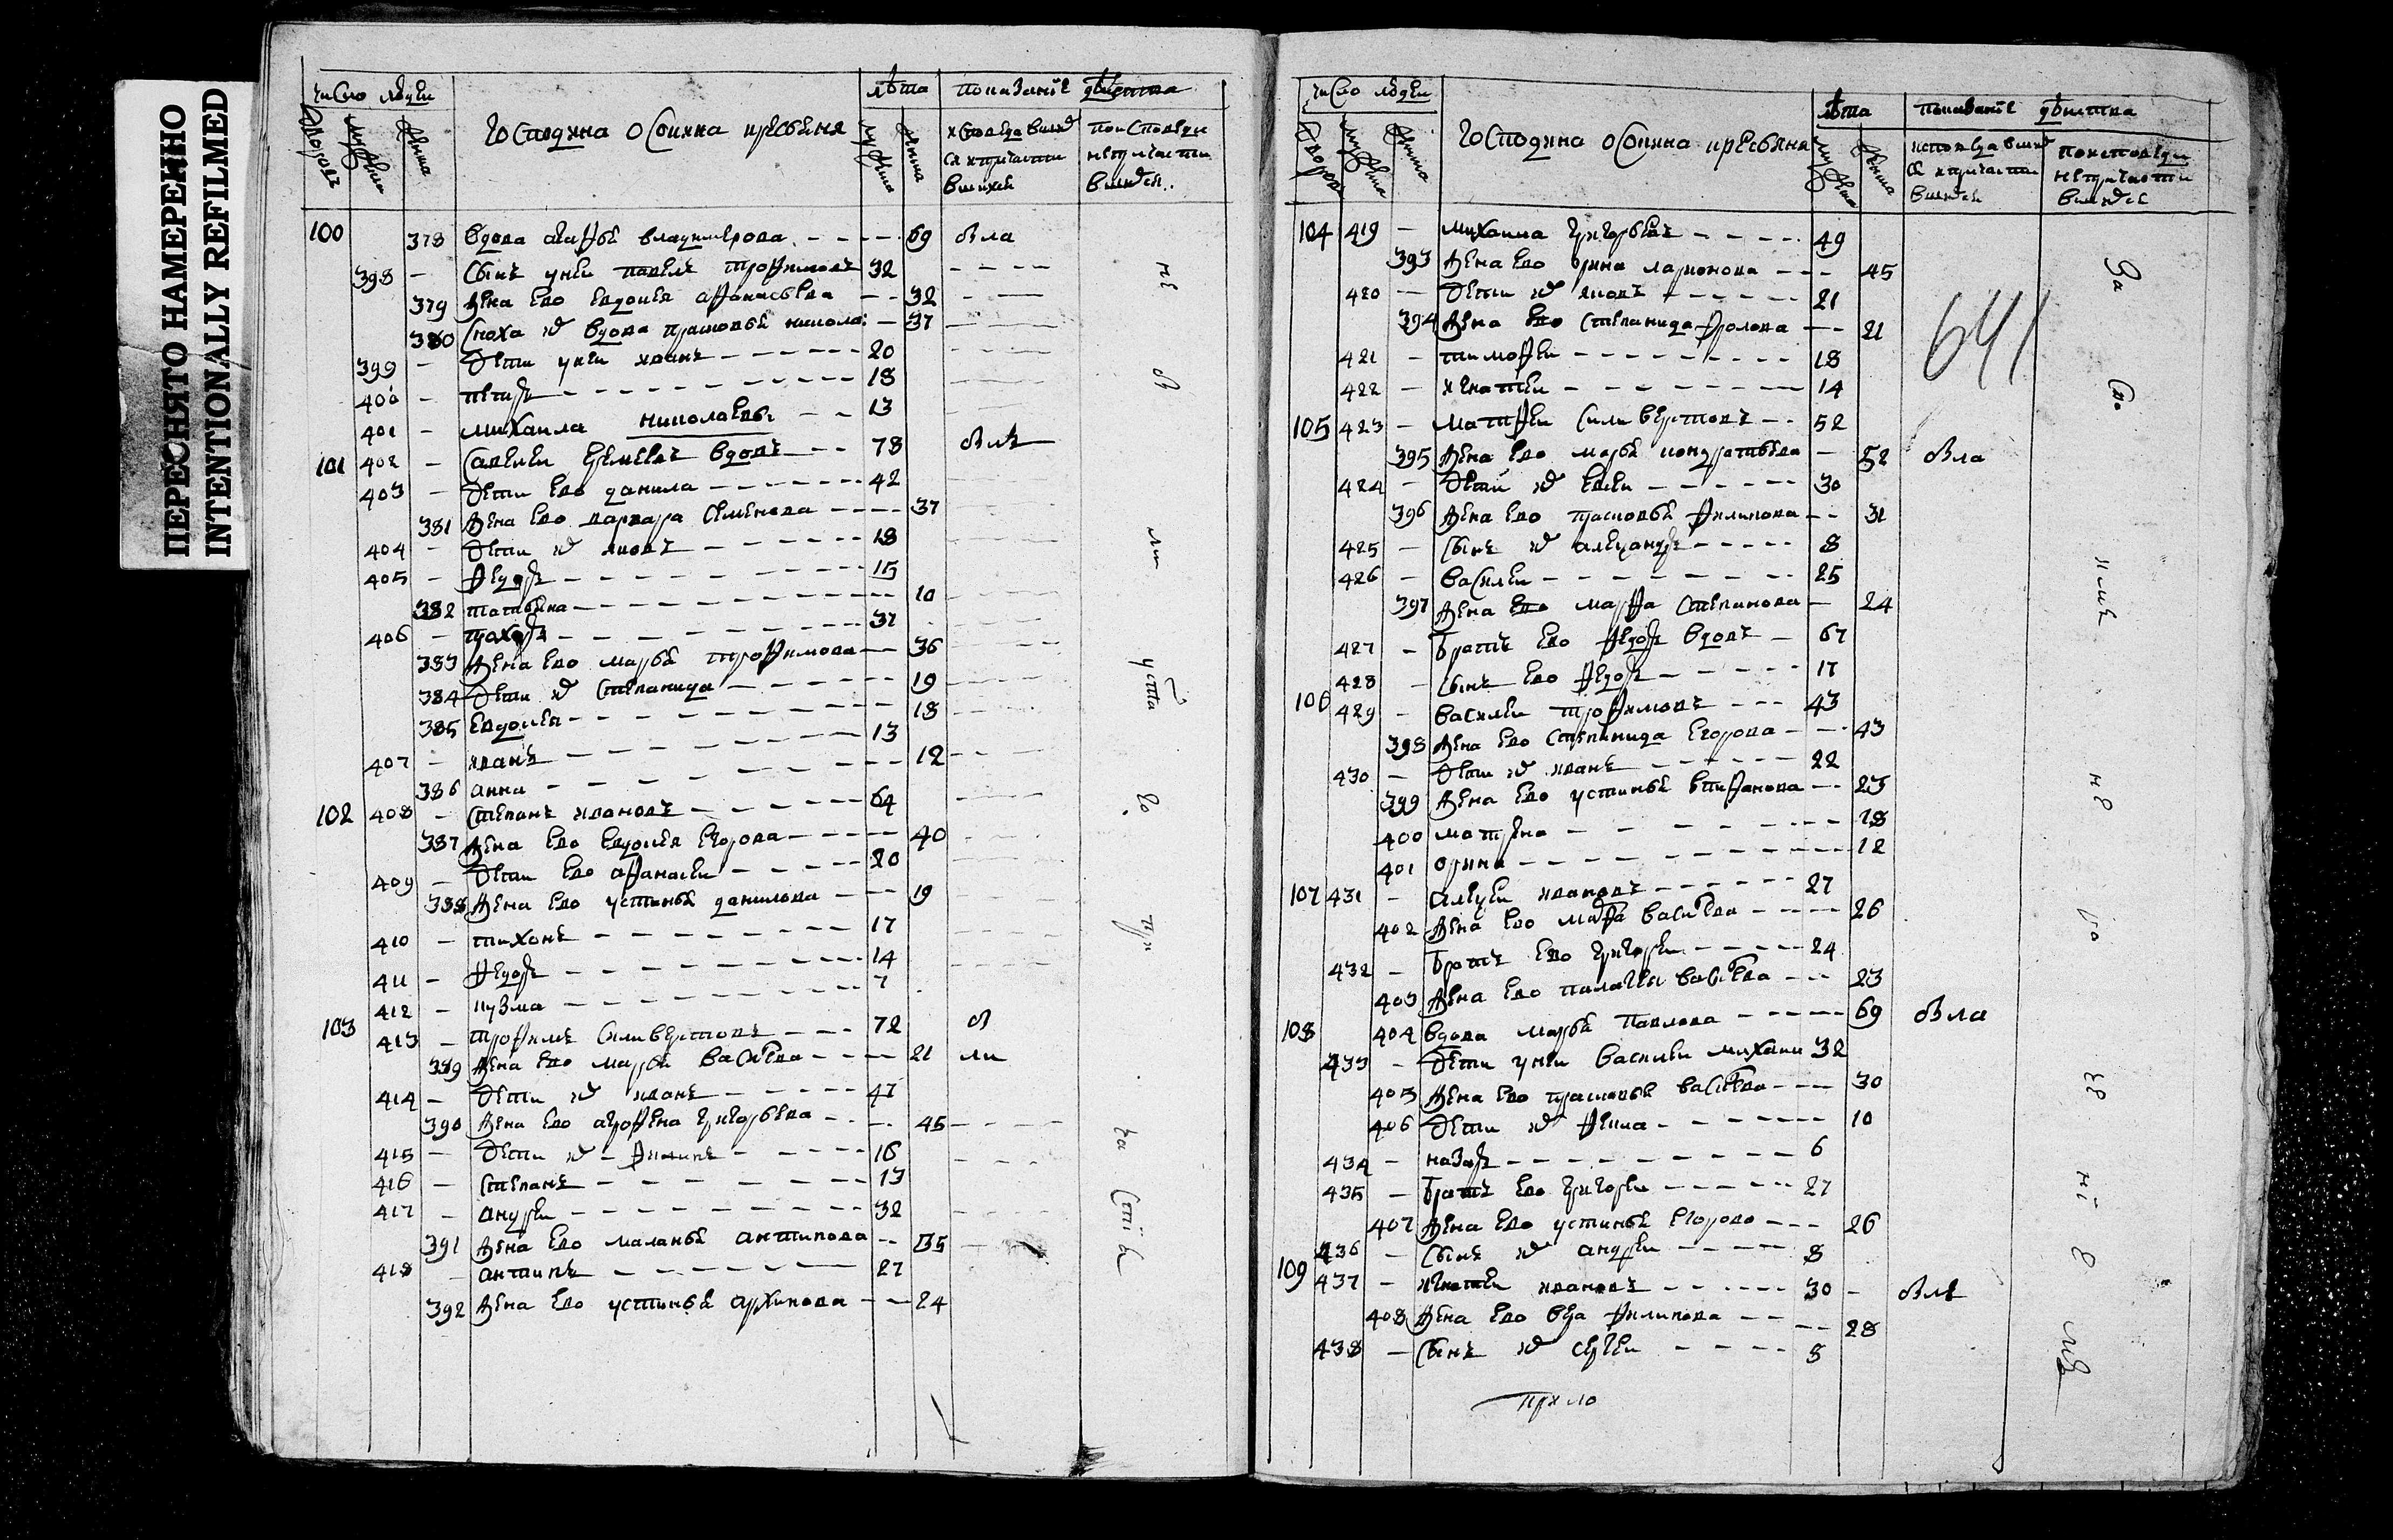 ПЕРЕСНЯТО НАМЕРЕННО
INTENTIONALLY REFILMED
число людей лѣта показание действа
дворовъ мужска женска господина осокина крестьяня мужска женска исповедавшихся и причастившихся по исповеди не причастившихся
100 378 вдова агафья владимерова 69 была
398 сынъ у неи павелъ трофимовъ 32
379 жена ево евдокия афанасьева 32
380 сноха ж вдова прасковья никола: 37
399 дети у неи иванъ 20
400 петръ 18
401 михаила николаевы 13
101 402 савелеи еремеевъ вдовъ 78 были
403 дети ево данила 42
381 жена ево варвара семенова 37
404 дети ж яковъ 18
405 федоръ 15
382 татьяна 10
406 прохоръ 37
383 жена ево марья трофимова 36
384 дети ж степанида 19
385 евдокея 18
407 иванъ 13
386 анна 12
102 408 степанъ ивановъ 64
387 жена ево евдокея егорова 40
409 дети ево афанасеи 20
388 жена ево устинья данилова 19
410 тихонъ 17
411 федоръ 14
412 кузма 7
103 413 трофимъ силиверстовъ 72 бы
389 жена ево марья васильева 21 ли
414 дети ж иванъ 47
390 жена ево агрофена григорьева 45
415 дети ж филипъ 16
416 степанъ 13
417 андреи 32
391 жена ево маланья антипова 35
418 антипъ 27
392 жена ево устинья архипова 24
не
за
число людеи лѣта показание действа
дворовъ мужска женска господина осокина крестьяня мужска женска исповедавшихся и причастившихся по исповеди не причастившихся
104 419 михаила григорьевъ 49
393 жена ево орина ларионова 45
420 дети ж яковъ 21
394 жена ево степанида фролова 21
641
421 тимофеи 18
422 игнатеи 14
105 423 матфеи силиверстовъ 52
395 жена ево марья кондратьева 52 была
424 дети ж евсеи 30
396 жена ево прасковья филипова 31
425 сынъ ж александръ 8
426 василеи 25
397 жена ево марфа степанова 24
427 братъ ево федоръ вдовъ 67
428 сынъ ево федоръ 17
106 429 василеи трофимовъ 43
398 жена ево степанида егорова 43
430 дети ж иванъ 22
399 жена ево устинья епифанова 23
400 матрена 18
401 орина 12
107 431 алексеи ивановъ 27
402 жена ево марфа васильева 26
432 братъ ево григореи 24
403 жена ево палагея васильева 23
108 404 вдова марья павлова 69 была
433 дети у неи василеи михаи 32
405 жена ево прасковья васильева 30
406 дети ж фекла 10
434 назаръ 6
435 братъ ево григореи 27
407 жена ево устинья егорово 26
436 сынъ ж андреи 8
109 437 игнатеи ивановъ 30 были
408 жена ево вера филипова 28
438 сынъ ж сергеи 8
За